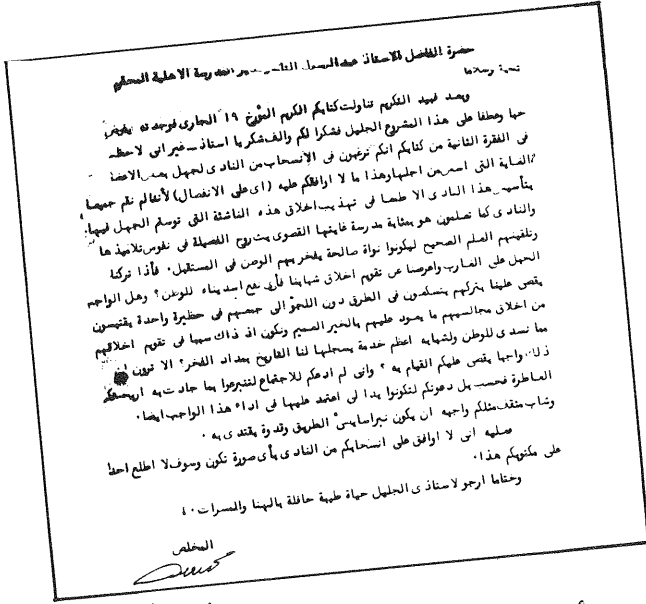 حضرة الفاضل الاستاذ عبد الرسول مدير المدرسة الاهلية المحترم
تحية وسلاما
وبعد فبيد التكريم تناولت كتابكم الكريم المؤرخ ١٩ الجارى فوجدته
حبا وعطفا على هذا المشروع الجليل فشكرا لكم والف شكر يا استاذ غير انى لاحظت
فى الفقرة الثانية من كتابكم انكم ترغبون فى الانسحاب من النادى لجهل بعض الاعضاء
الغاية التى اسس من اجلها وهذا ما لا اوافقكم عليه (اى على الانفصال) لأننا لم نقم جميعا
بتأسيس هذا النادى الا طمعا فى تهذيب اخلاق هذه الناشئة التى توسم الجهل فيها
والنادى كما تعلمون هو بمثابة مدرسة غايتها القصوى بث روح الفضيلة فى نفوس تلاميذها
وتلقينهم العلم الصحيح ليكونوا نواة صالحة يفخر بهم الوطن فى المستقبل. فأذا تركنا
الحبل على الغارب واعرضنا عن تقويم اخلاق شبابنا فأى نفع اسديناه للوطن؟ وهل الواجب
يقضى علينا بتركهم يتسكعون فى الطرق دون اللجؤ الى جمعهم فى حظيرة واحدة يقتبسون
من اخلاق مجالسيهم ما يعود عليهم بالخير العميم ونكون اذ ذاك سببا فى تقويم اخلاقهم
مما نسدى للوطن ولشبابه اعظم خدمة يسجلها لنا التاريخ بمداد الفخر؟ الا ترون ان
ذلك واجبا يقضى عليكم القيام به؟ وانى لم ادعكم للاجتماع لتتبرعوا بما جادت به اريحيتكم
العاطرة فحسب بل دعوتكم لتكونوا يدا لى اعتمد عليها فى اداء هذا الواجب ايضا.
وشاب مثقف مثلكم واجبه ان يكون نبراسا يضئ الطريق وقدوة يقتدى به.
وعليه انى لا اوافق على انسحابكم من النادى بأى صورة تكون وسوف لا اطلع احدا
على مكتوبكم هذا.
وختاما ارجو لاستاذى الجليل حياة طيبة حافلة بالهنا والمسرات.
المخلص